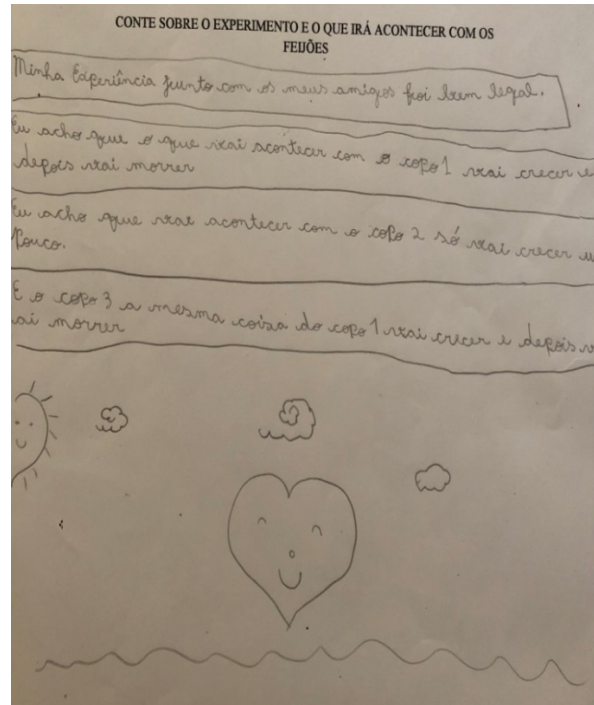 CONTE SOBRE O EXPERIMENTO E O QUE IRÁ ACONTECER COM OS
FEIJÕES
Minha Experiência junto com os meus amigos foi bem legal.
Eu acho que o que vai acontecer com o copo 1 vai crecer e
depois vai morrer
Eu acho que vai acontecer com o copo 2 só vai crecer u
Pouco.
E o copo 3 a mesma coisa do copo 1 vai crecer e depois v
ai morrer